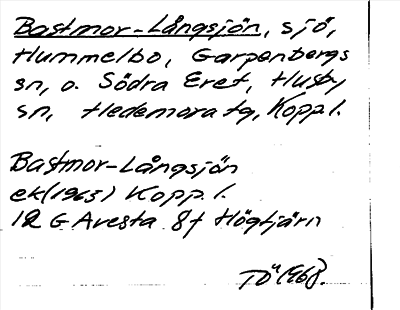 Bastmor-Långsjön, sjö,
Hummelbo, Garpenbergs
sn, o. Södra Eret, Husby
sn, Hedemora tg, Kopp l.
Bastmor-Långsjön
ek (1965) Kopp l.
12 G Avesta 8f Högtjärn
TÖ 1968.